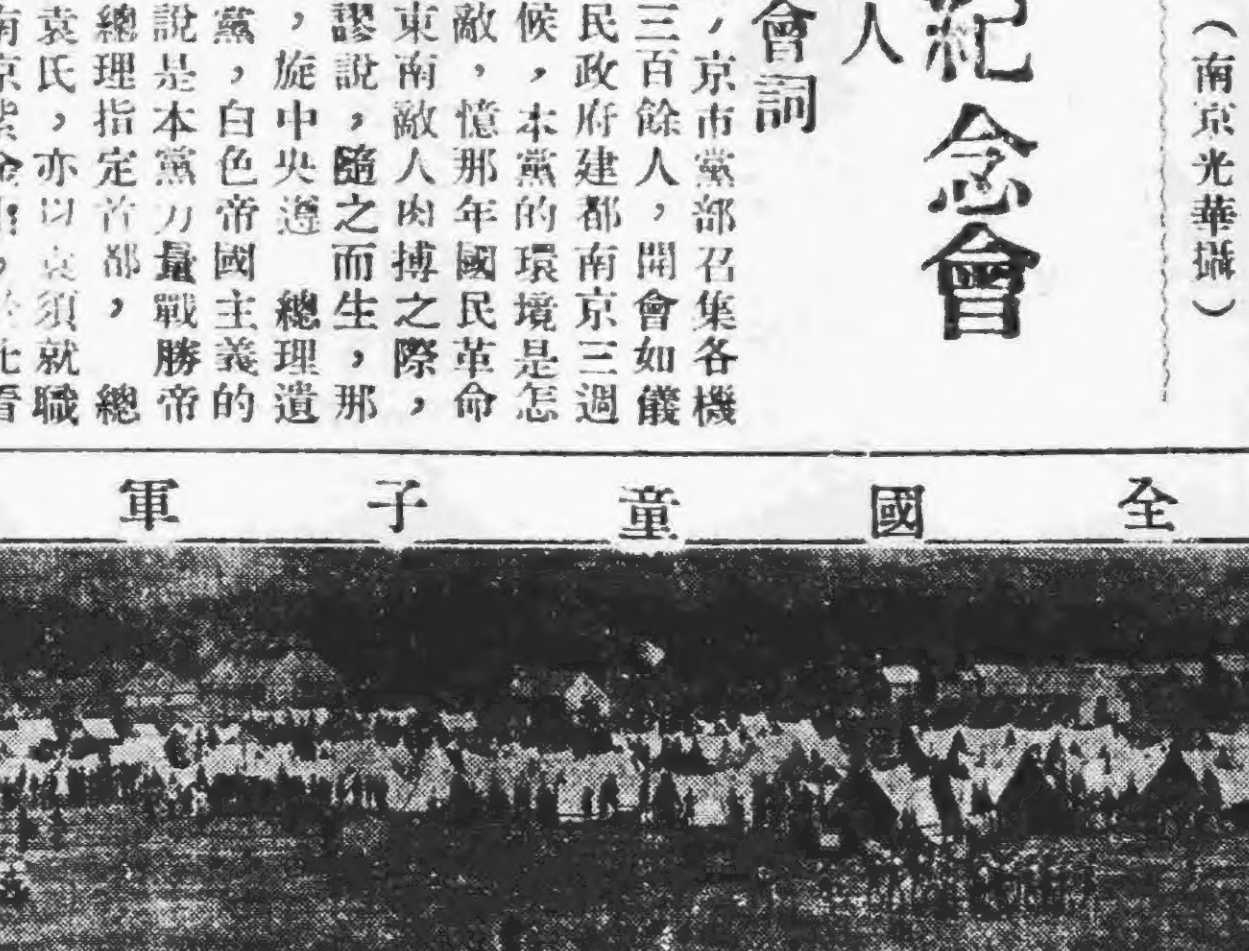 （南京光華攝）
紀念會
人
會詞
，京市黨部召集各機
三百餘人，開會如儀
民政府建都南京三週
候，本黨的環境是怎
敵，憶那年國民革命
東南敵人肉搏之際，
謬說，隨之而生，那
，旋中央遵　總理遺
黨，白色帝國主義的
說是本黨力量戰勝帝
總理指定首都，　總
袁氏，亦以袁須就職
南京紫金山，於此看
全國童子軍